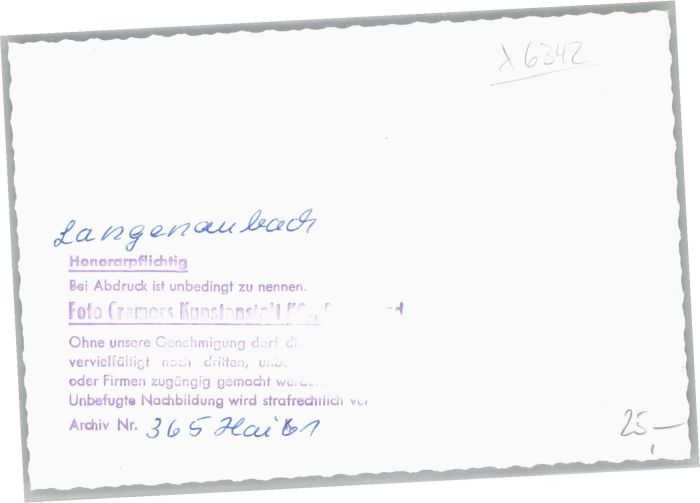 λ 6342
Langenaubach
Honorarpflichtig
Bei Abdruck ist unbedingt zu nennen.
Foto Cramers Kunstanstalt KG.,
Ohne unsere Genehmigung darf
vervielfältigt noch dritten,
oder Firmen zugängig gemacht
Unbefugte Nachbildung wird strafrechtlich
Archiv Nr. 365 Hai 61
25,—